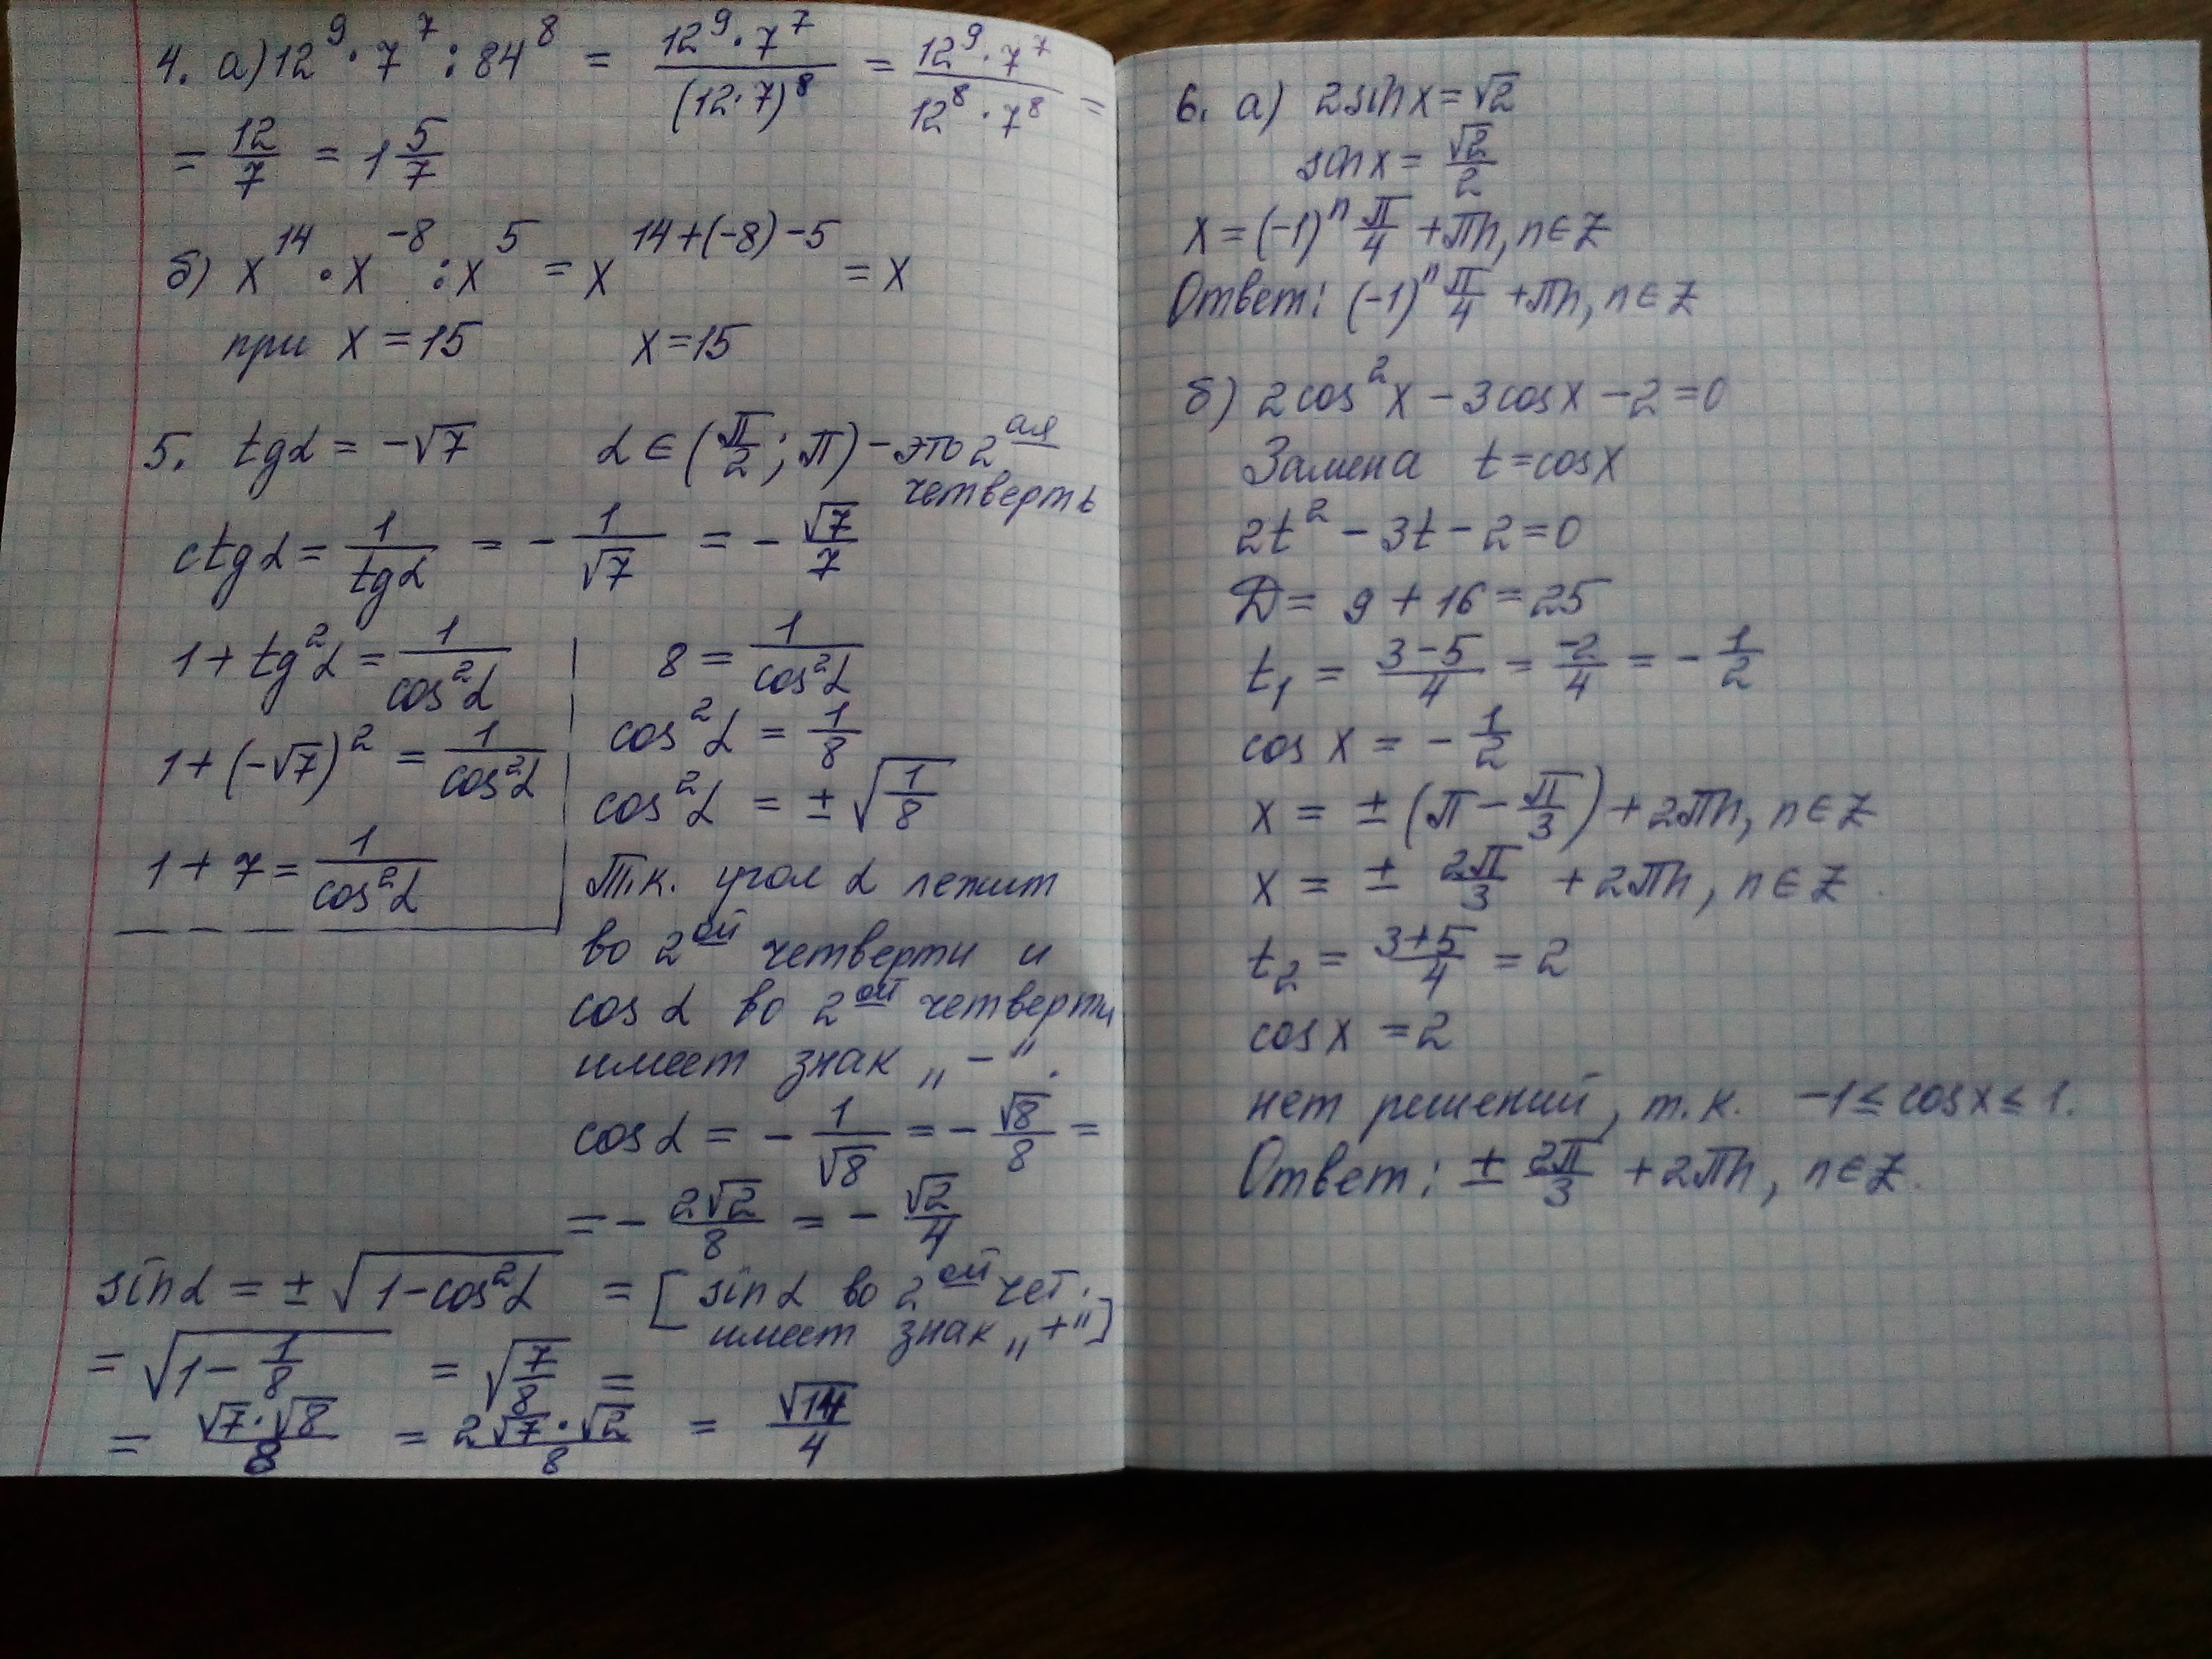 4. а) 12⁹ · 7⁷ : 84⁸ = (12⁹ · 7⁷)/((12·7)⁸) = (12⁹ · 7⁷)/(12⁸ · 7⁸) =
= 12/7 = 1 5/7
б) x¹⁴ · x⁻⁸ : x⁵ = x^(14+(-8)-5) = x
при x = 15 x = 15
5. tgα = -√7 α ∈ (π/2; π) - это 2ая
четверть
ctgα = 1/tgα = - 1/√7 = - √7/7
1 + tg²α = 1/cos²α
1 + (-√7)² = 1/cos²α
1 + 7 = 1/cos²α
8 = 1/cos²α
cos²α = 1/8
cos²α = ± √(1/8)
Т.к. угол α лежит
во 2ой четверти и
cos α во 2ой четверти
имеет знак „-“.
cos α = - 1/√8 = - √8/8 =
= - 2√2/8 = - √2/4
sinα = ± √(1-cos²α) = [sinα во 2ой чет.
имеет знак „+“]
= √(1 - 1/8) = √(7/8) =
= (√7·√8)/8 = (2√7·√2)/8 = √14/4
6. а) 2sinx = √2
sinx = √2/2
x = (-1)ⁿ π/4 + πn, n ∈ Z
Ответ: (-1)ⁿ π/4 + πn, n ∈ Z
б) 2cos²x - 3cosx - 2 = 0
Замена t = cosx
2t² - 3t - 2 = 0
D = 9 + 16 = 25
t₁ = (3-5)/4 = -2/4 = - 1/2
cos x = - 1/2
x = ± (π - π/3) + 2πn, n ∈ Z
x = ± 2π/3 + 2πn, n ∈ Z.
t₂ = (3+5)/4 = 2
cosx = 2
нет решений, т.к. -1 ≤ cosx ≤ 1.
Ответ: ± 2π/3 + 2πn, n ∈ Z.